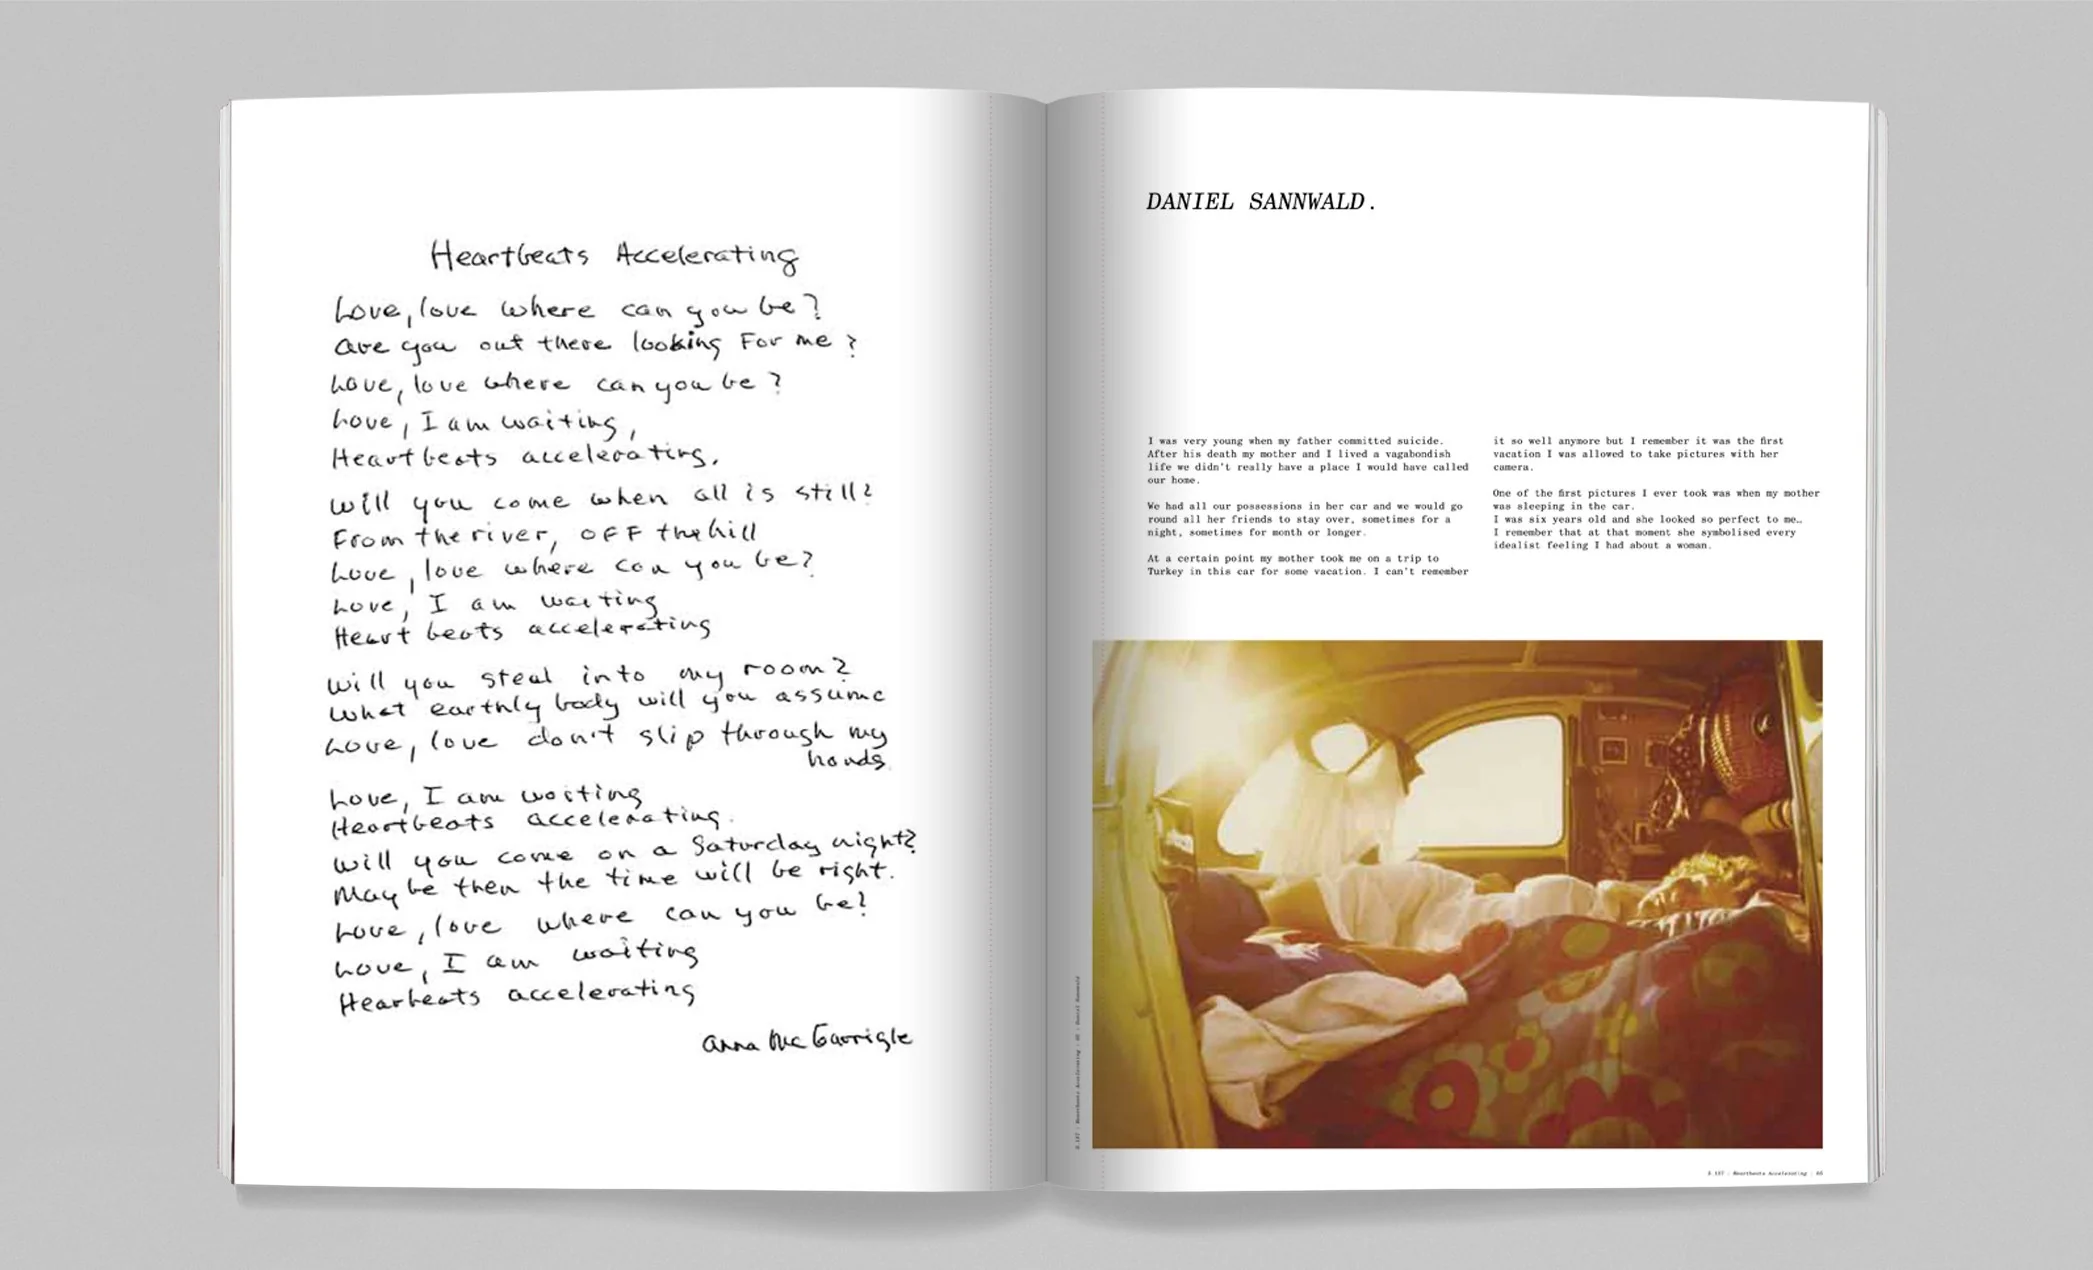 Heartbeats Accelerating
Love, love where can you be?
are you out there looking For me?
Love, love where can you be?
Love, I am waiting,
Heartbeats accelerating.
Will you come when all is still?
From the river, OFF the hill
Love, love where can you be?
Love, I am waiting
Heart beats accelerating
Will you steal into my room?
What earthly body will you assume
Love, love don't slip through my
hands.
Love, I am waiting
Heartbeats accelerating.
Will you come on a Saturday night?
Maybe then the time will be right.
Love, love where can you be?
Love, I am waiting
Hearbeats accelerating
anna McGarrigle
DANIEL SANNWALD.
I was very young when my father committed suicide.
After his death my mother and I lived a vagabondish
life we didn't really have a place I would have called
our home.
We had all our possessions in her car and we would go
round all her friends to stay over, sometimes for a
night, sometimes for month or longer.
At a certain point my mother took me on a trip to
Turkey in this car for some vacation. I can't remember
it so well anymore but I remember it was the first
vacation I was allowed to take pictures with her
camera.
One of the first pictures I ever took was when my mother
was sleeping in the car.
I was six years old and she looked so perfect to me…
I remember that at that moment she symbolised every
idealist feeling I had about a woman.
Heartbeats Accelerating : Daniel Sannwald
Heartbeats Accelerating